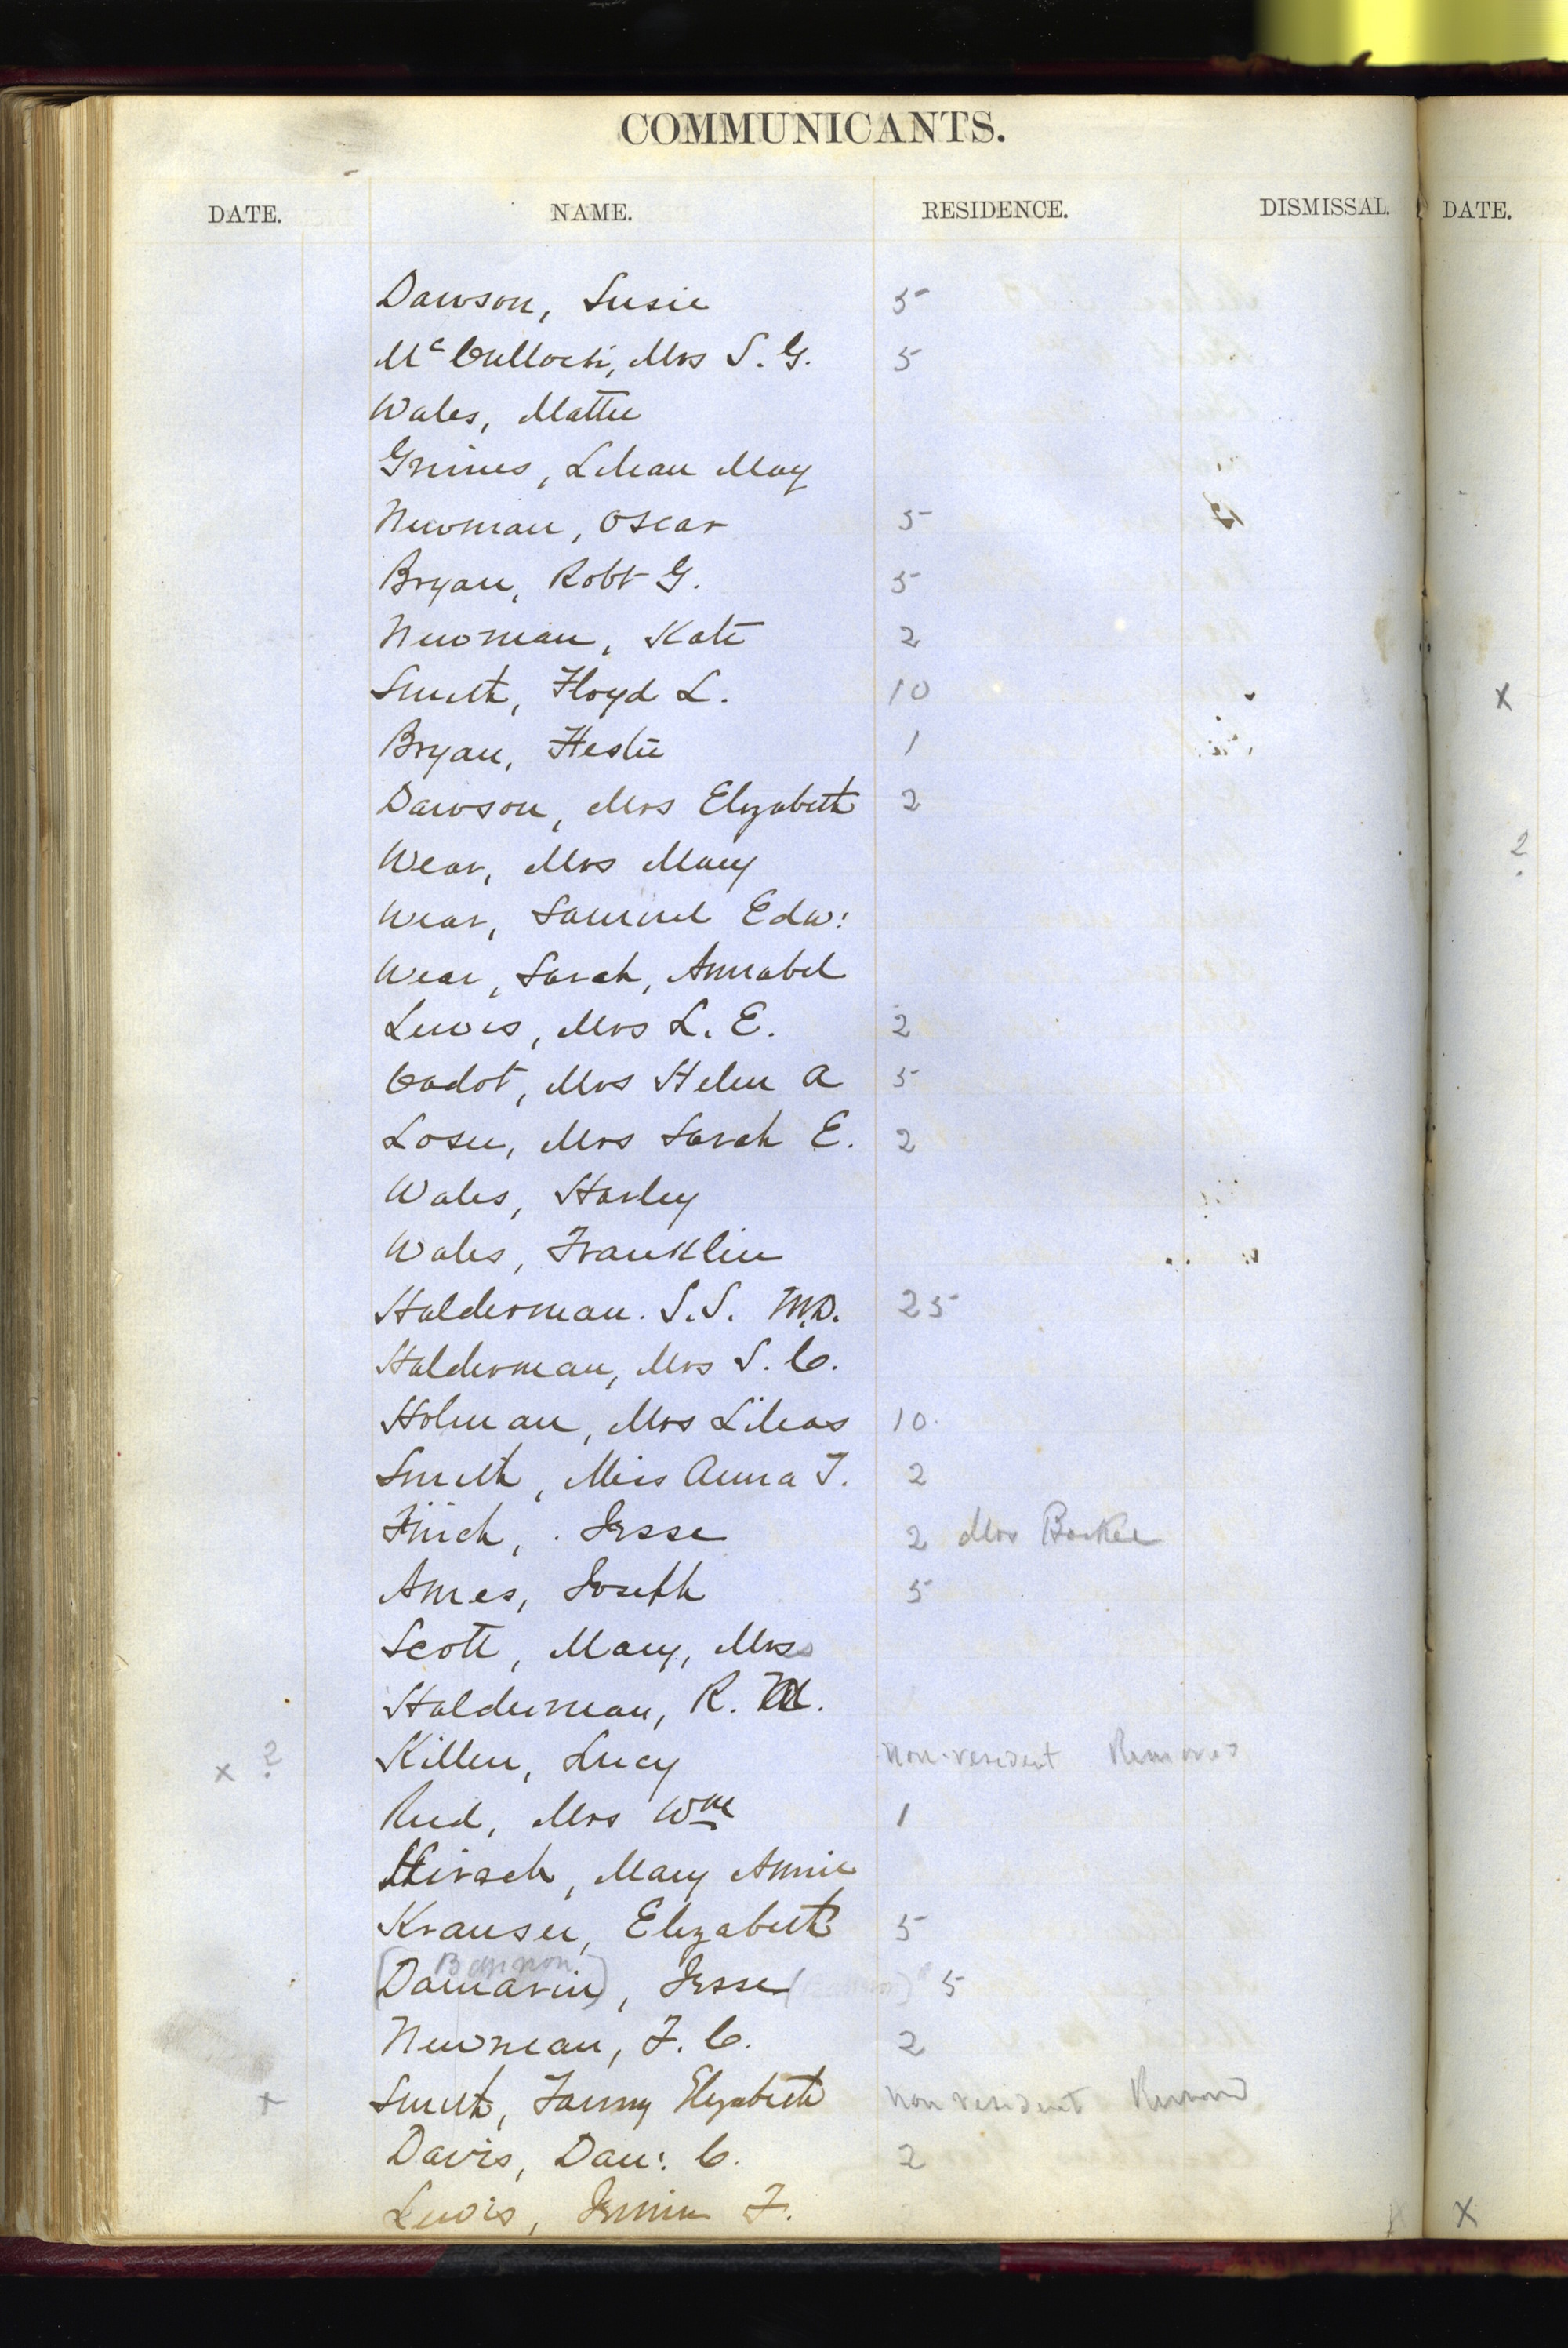 COMMUNICANTS.
DATE. NAME. RESIDENCE. DISMISSAL. DATE.
Dawson, Susie 5
McCulloch, Mrs S. G. 5
Wales, Mattie
Grimes, Lilian May
Newman, Oscar 5
Bryan, Robt G. 5
Newman, Kate 2
Smith, Floyd L. 10
X
Bryan, Hestie 1
Dawson, Mrs Elizabeth 2
?
Wear, Mrs Mary
Wear, Samuel Edw:
Wear, Sarah, Annabel
Lewis, Mrs L. E. 2
Cadot, Mrs Helen A 5
Losee, Mrs Sarah E. 2
Wales, Harley
Wales, Franklin
Halderman. S.S. M.D. 25
Halderman, Mrs S. C.
Holman, Mrs Lilias 10.
Smith, Miss Anna T. 2
Finch, . Jesse 2 Mrs
Ames, Joseph 5
Scott, Mary, Mrs
Halderman, R. M.
x ? Killen, Lucy non-resident Removed
Reed, Mrs Wm 1
Hirsch, Mary Annie
Krauser, Elizabeth 5
Bannon
(Damarin), Jesse 5
Newman, F. C. 2
x Smith, Fanny Elizabeth non resident Removed
Davis, Dan: C. 2
Lewis, Jennie F. X